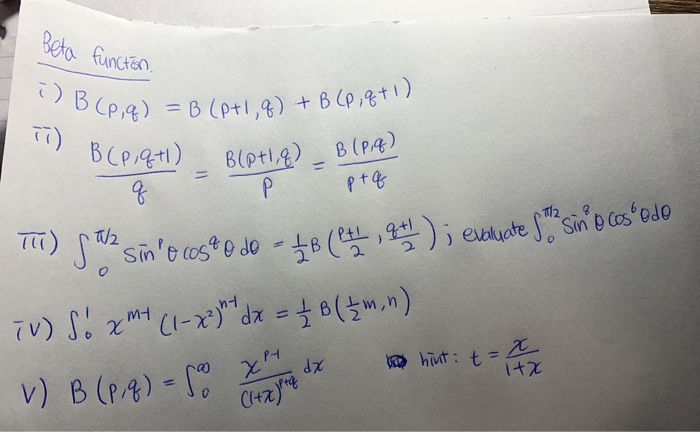 Beta function.
i) B(p,q) = B(p+1,q) + B(p,q+1)
ii) B(p,q+1)/q = B(p+1,q)/p = B(p,q)/p+q
iii) ∫₀^π/2 sin^p θ cos^q θ dθ = 1/2 B(p+1/2, q+1/2); evaluate ∫₀^π/2 sin^8 θ cos^6 θ dθ
iv) ∫₀^1 x^m-1 (1-x²)^n-1 dx = 1/2 B(1/2 m, n)
v) B(p,q) = ∫₀^∞ x^p-1/(1+x)^p+q dx hint: t = x/1+x